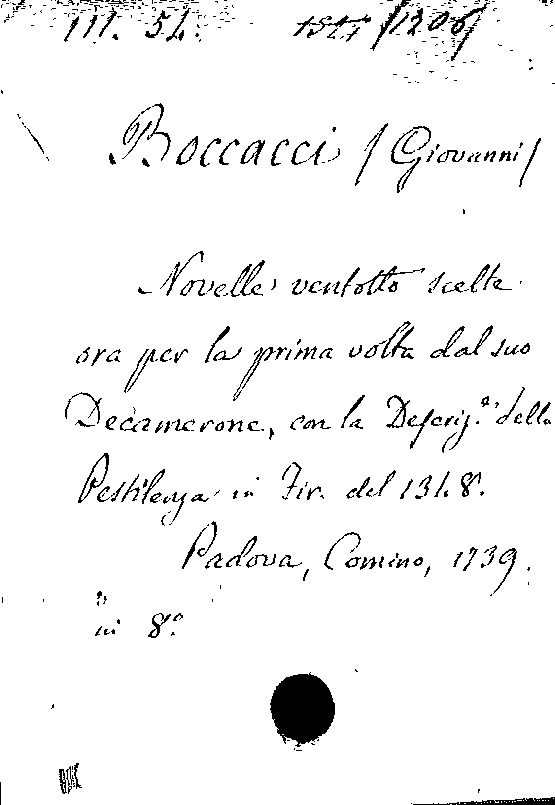 III. 54.
/1206/
Boccacci /Giovanni/
Novelle ventotto scelte
ora per la prima volta dal suo
Decamerone, con la Descriz.e della
Pestilenza in Fir. del 1348.
Padova, Comino, 1739.
in 8.o